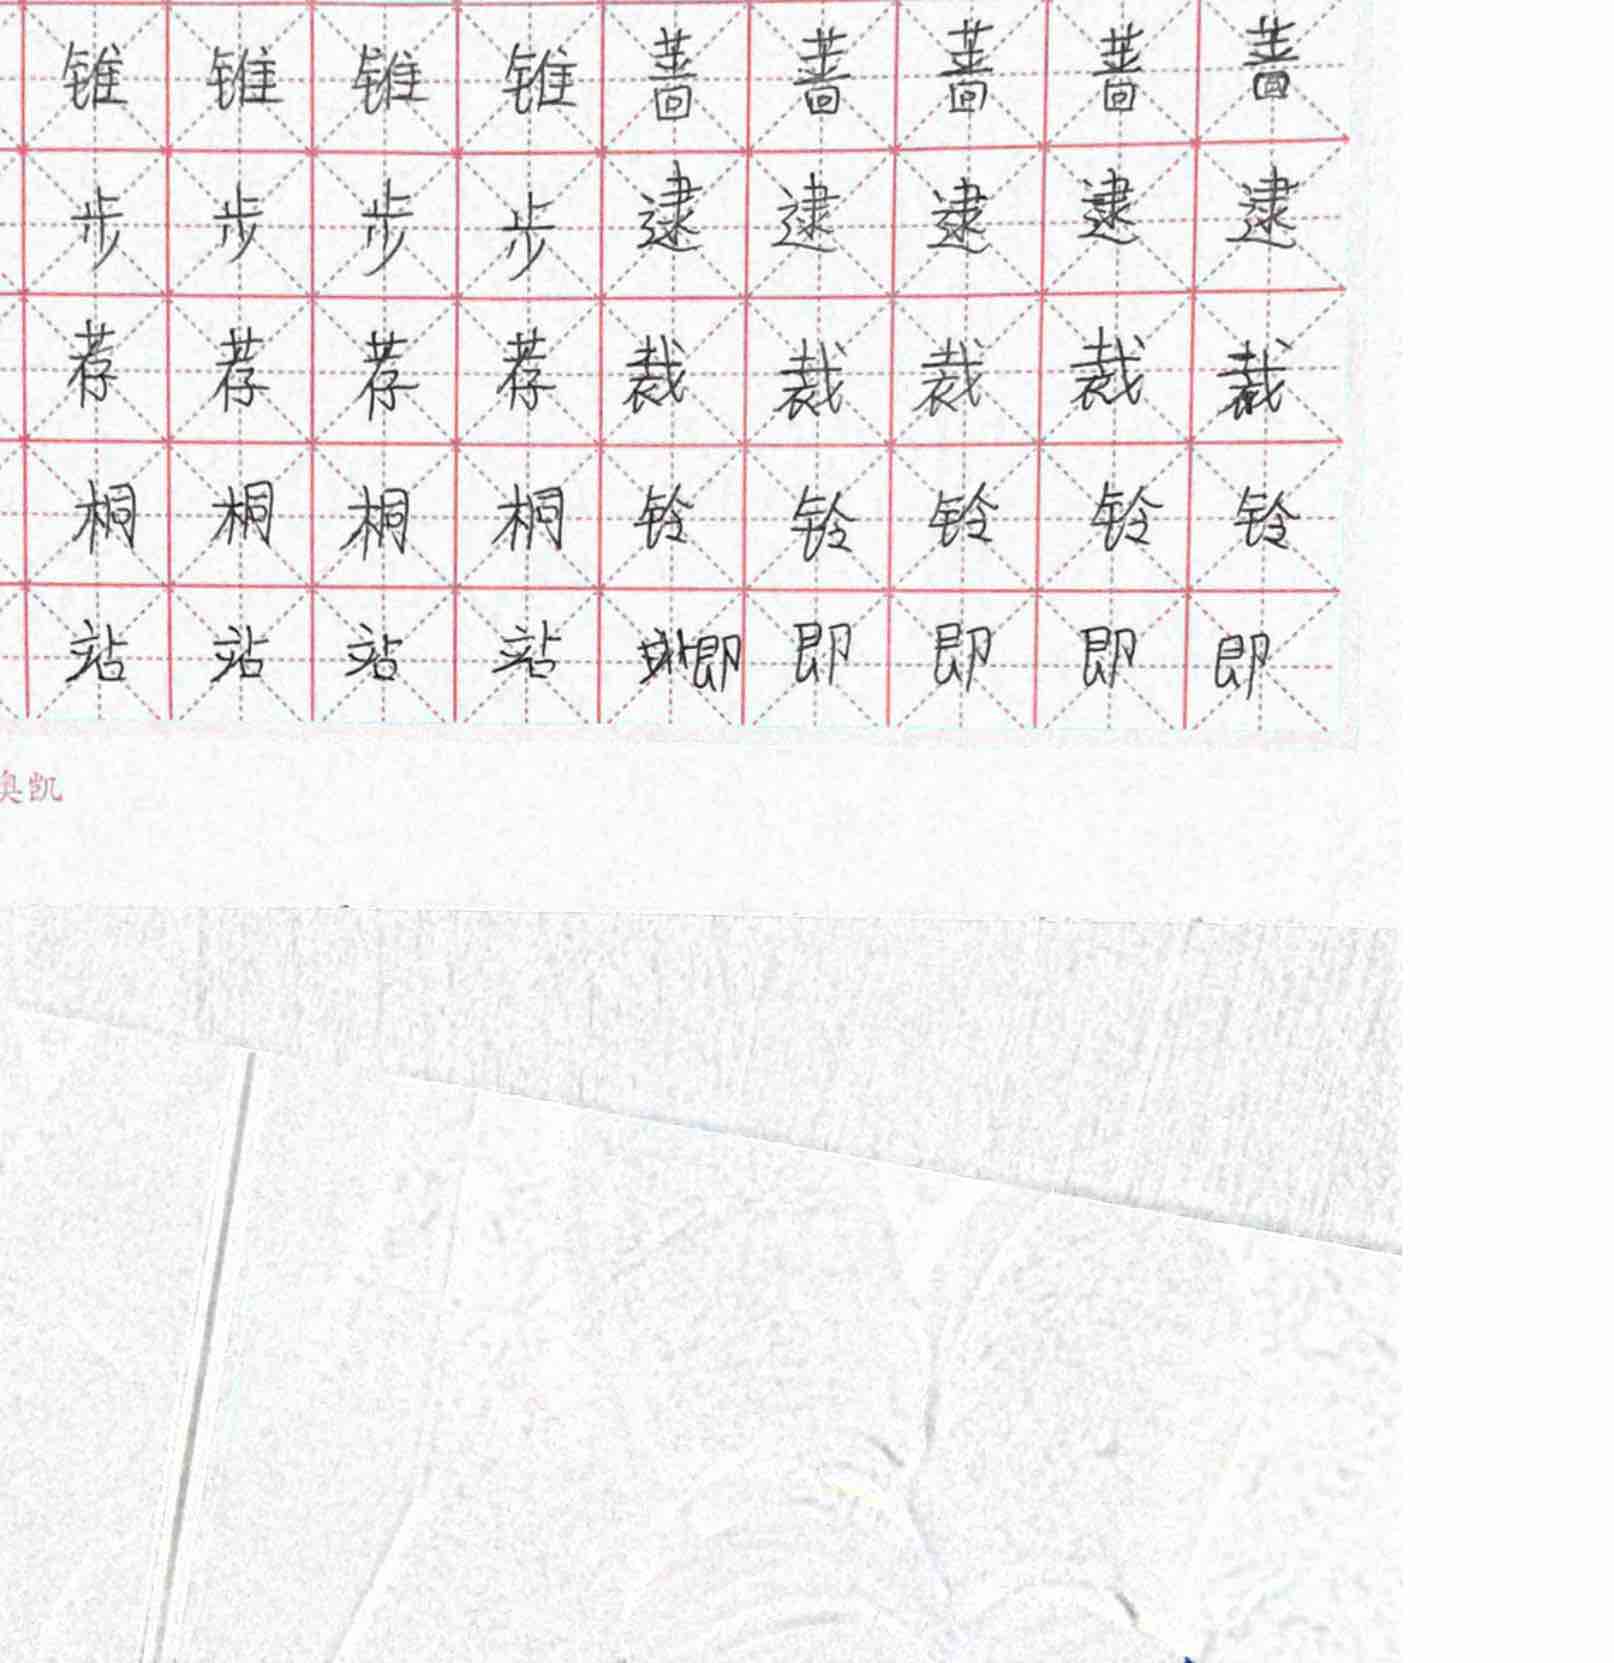 锥锥锥锥蔷蔷蔷蔷蔷
步步步步逮逮逮逮逮
荐荐荐荐裁裁裁裁裁
桐桐桐桐铃铃铃铃铃
站站站站即即即即即
奥凯